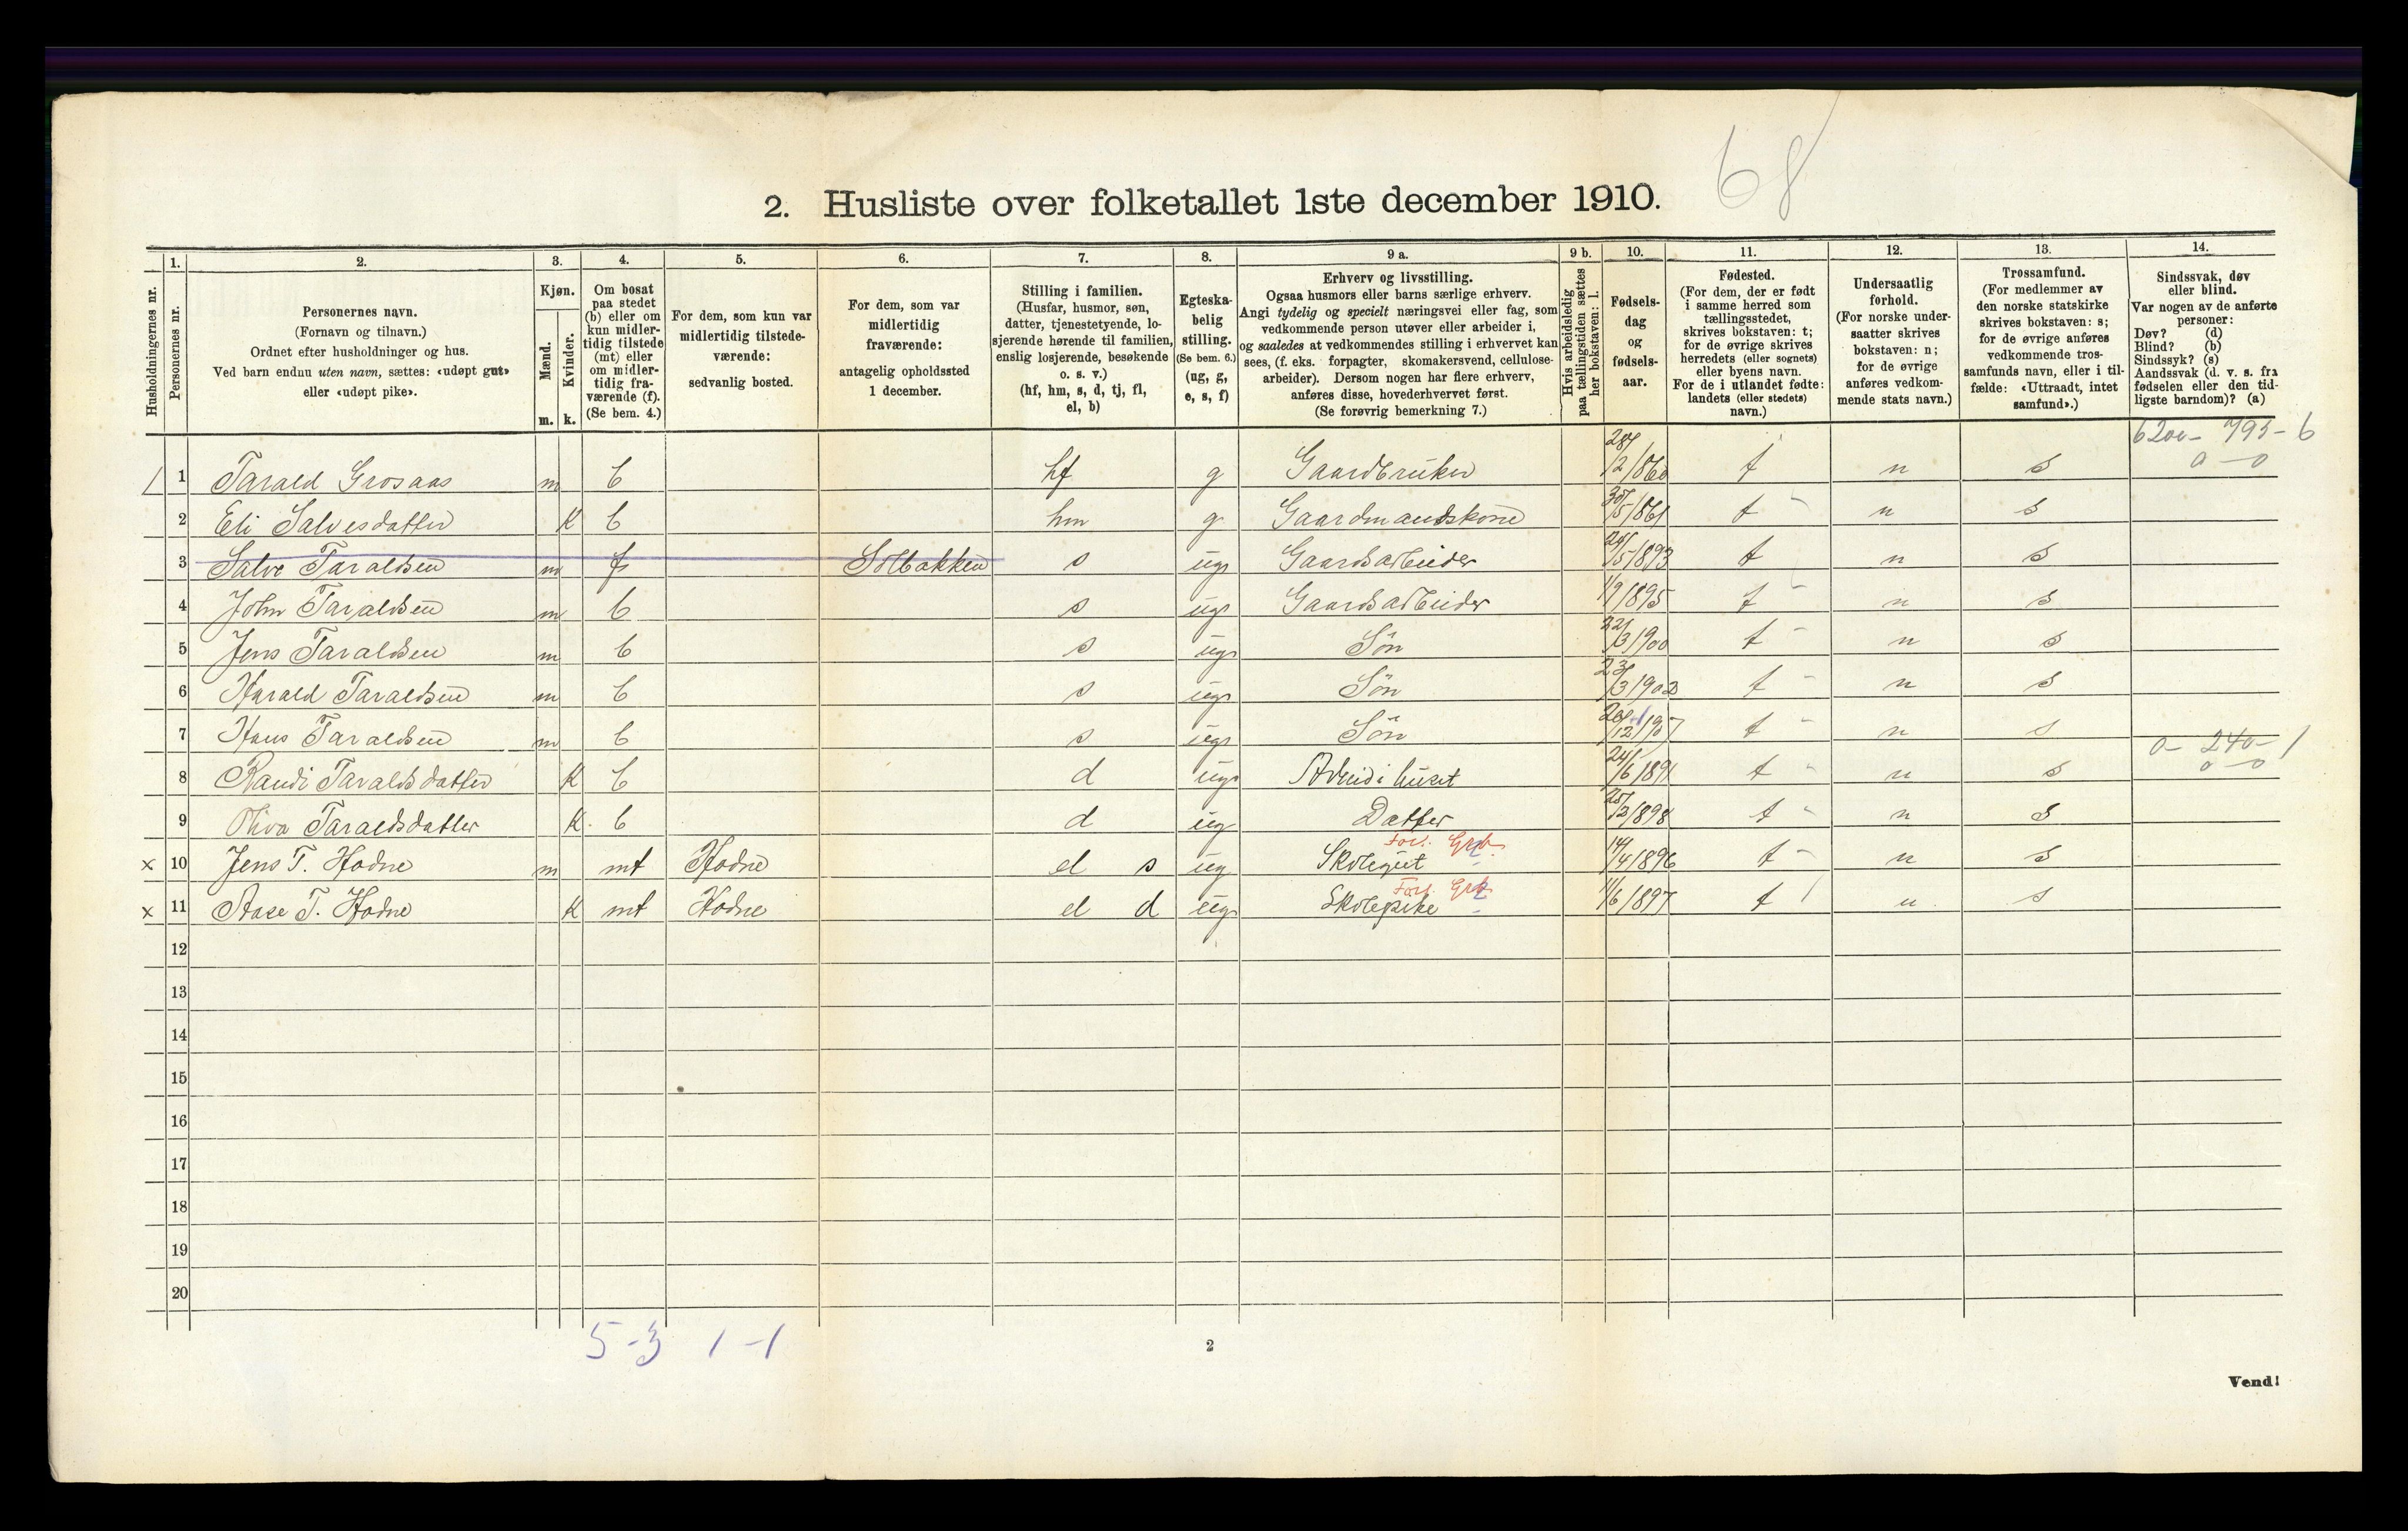 68
2. Husliste over folketallet 1ste december 1910.
Husholdningernes nr.
1. Personernes nr.
2. Personernes navn.
(Fornavn og tilnavn.)
Ordnet efter husholdninger og hus.
Ved barn endnu uten navn, sættes: «udøpt gut»
eller «udøpt pike».
3. Kjøn.
Mænd. m.
Kvinder. k.
4. Om bosat
paa stedet
(b) eller om
kun midler-
tidig tilstede
(mt) eller
om midler-
tidig fra-
værende (f).
(Se bem. 4.)
5. For dem, som kun var
midlertidig tilstede-
værende:
sedvanlig bosted.
6. For dem, som var
midlertidig
fraværende:
antagelig opholdssted
1 december.
7. Stilling i familien.
(Husfar, husmor, søn,
datter, tjenestetyende, lo-
sjerende hørende til familien,
enslig losjerende, besøkende
o. s. v.)
(hf, hm, s, d, tj, fl,
el, b)
8. Egteska-
belig
stilling.
(Se bem. 6.)
(ug, g,
e, s, f)
9 a. Erhverv og livsstilling.
Ogsaa husmors eller barns særlige erhverv.
Angi tydelig og specielt næringsvei eller fag, som
vedkommende person utøver eller arbeider i,
og saaledes at vedkommendes stilling i erhvervet kan
sees, (f. eks. forpagter, skomakersvend, cellulose-
arbeider). Dersom nogen har flere erhverv,
anføres disse, hovederhvervet først.
(Se forøvrig bemerkning 7.)
9 b. Hvis arbeidsledig
paa tællingstiden sættes
her bokstaven: l.
10. Fødsels-
dag
og
fødsels-
aar.
11. Fødested.
(For dem, der er født
i samme herred som
tællingsstedet,
skrives bokstaven: t;
for de øvrige skrives
herredets (eller sognets)
eller byens navn.
For de i utlandet fødte:
landets (eller stedets)
navn.)
12. Undersaatlig
forhold.
(For norske under-
saatter skrives
bokstaven: n;
for de øvrige
anføres vedkom-
mende stats navn.)
13. Trossamfund.
(For medlemmer av
den norske statskirke
skrives bokstaven: s;
for de øvrige anføres
vedkommende tros-
samfunds navn, eller i til-
fælde: «Uttraadt, intet
samfund».)
14. Sindssvak, døv
eller blind.
Var nogen av de anførte
personer:
Døv? (d)
Blind? (b)
Sindssyk? (s)
Aandssvak (d. v. s. fra
fødselen eller den tid-
ligste barndom)? (a)
6200 - 795 - 6
0 - 0
1 1 Tarald Grosaas m b hf g Gaardbruker 28/12/1860 t n s
2 Eli Salvesdatter K b hm g Gaardmandskone 30/5/1861 t n s
3 Salve Taraldsen m f Solbakken s ug Gaardsarbeider 24/5/1893 t n s
4 John Taraldsen m b s ug Gaardsarbeider 1/9/1895 t n s
5 Jens Taraldsen m b s ug Søn 22/3/1900 t n s
6 Harald Taraldsen m b s ug Søn 23/3/1902 t n s
7 Hans Taraldsen m b s ug Søn t n s
0 - 240 - 1
0 - 0
8 Randi Taraldsdatter K b d ug Arbeid i huset 24/6/1891 t n s
9 Oliva Taraldsdatter K b d ug Datter 25/3/1898 t n s
Fors. Grb.
x 10 Jens T. Hodne m mt Hodne el s ug Skolegut 14/4/1896 t n s
Fors. Grb.
x 11 Aase T. Hodne K mt Hodne el d ug Skolepike 11/6/1897 t n s
12
13
14
15
16
17
18
19
20
5-3 1-1
2
Vend!